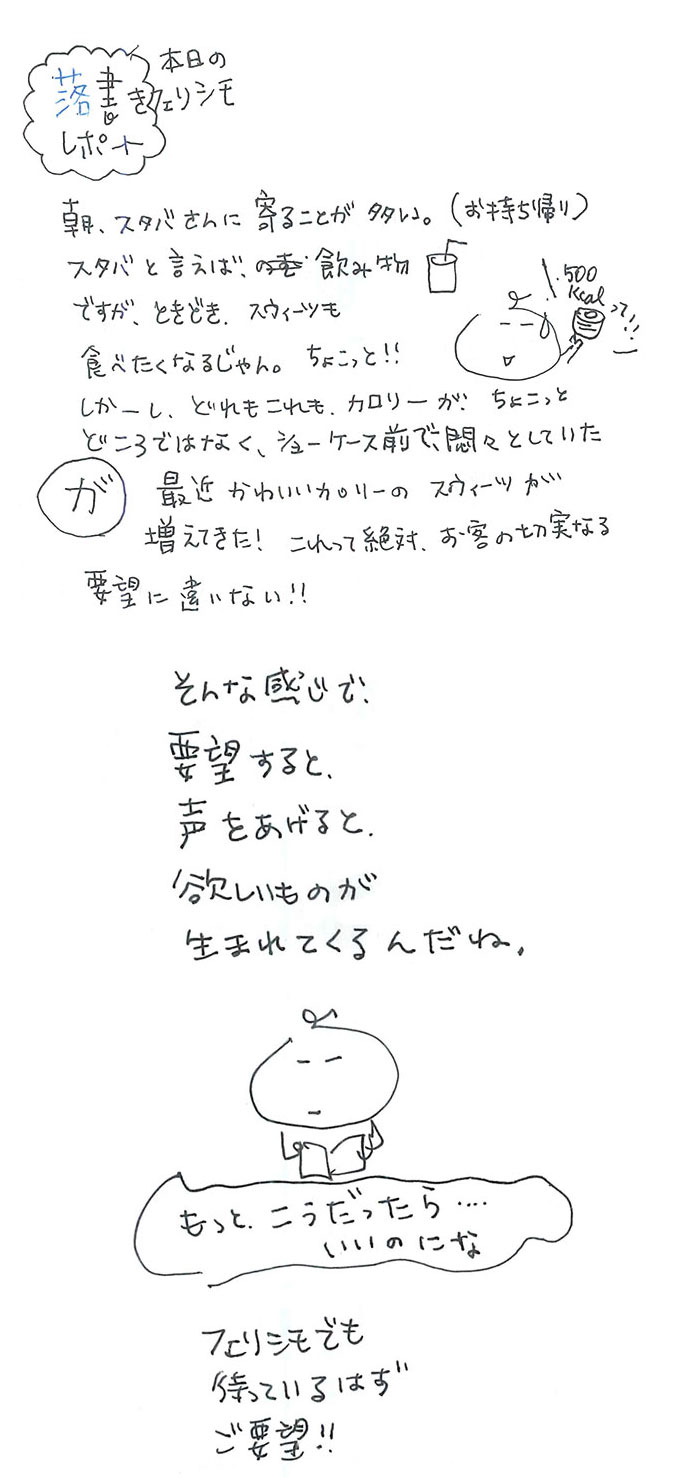 本日の
フェリシモ
落書き
レポート
朝、スタバさんに寄ることが多い。(お持ち帰り)
スタバと言えば、飲み物
ですが、ときどき、スウィーツも
500
Kcal
って!!
食べたくなるじゃん。ちょこっと!!
しかーし、どれもこれも、カロリーが、ちょこっと
どころではなく、ショーケース前で、悶々としていた
が 最近 かわいいカロリーの スウィーツが
増えてきた! これって絶対、お客の切実なる
要望に違いない!!
そんな感じで、
要望すると、
声をあげると、
欲しいものが
生まれてくるんだね。
もっと、こうだったら‥‥
いいのにな
フェリシモでも
待っているはず
ご要望!!